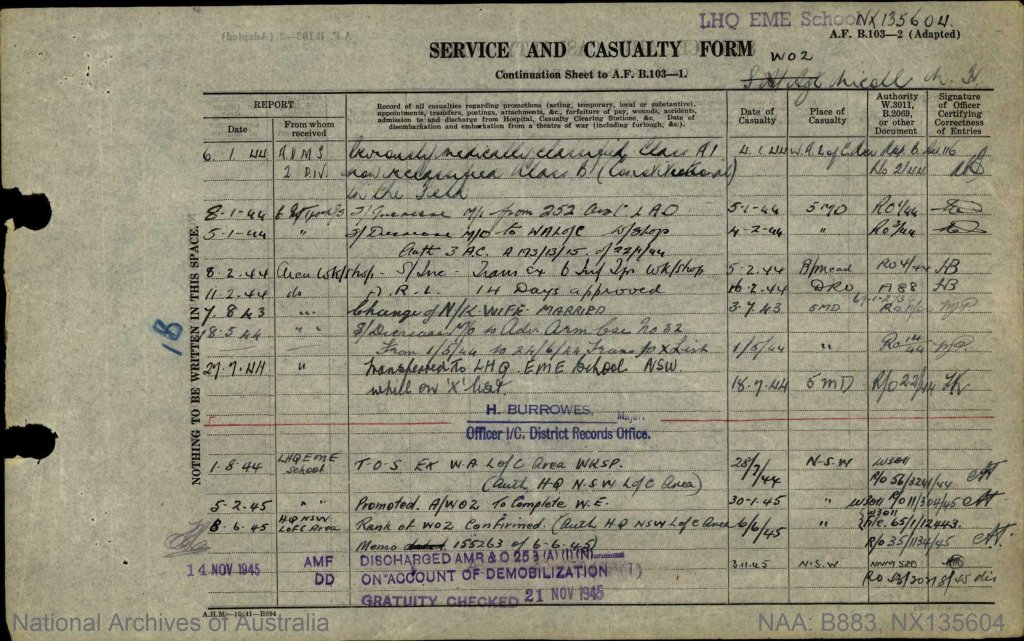 LHQ EME School NX135604.
A.F. B.103—2 (Adapted)
SERVICE AND CASUALTY FORM
WO2
Continuation Sheet to A.F. B.103—1.
Nicoll
REPORT
Date
From whom received
Record of all casualties regarding promotions (acting, temporary, local or substantive), appointments, transfers, postings, attachments, &c., forfeiture of pay, wounds, accidents, admission to and discharge from Hospital, Casualty Clearing Stations, &c. Date of disembarkation and embarkation from a theatre of war (including furlough, &c.).
Date of Casualty
Place of Casualty
Authority W.3011, B.2069, or other Document
Signature of Officer Certifying Correctness of Entries
NOTHING TO BE WRITTEN IN THIS SPACE.
1B
6.1.44 A.D.M.S. Previously medically classified Class A1 4.1.44
2 DIV. now reclassified Class B1 (Constitutional) Ro 2/44
In the Field
8-1-44 S/Increase M/o from 252 Aust LAD 5-1-44 5MD
5-1-44 " S/Decrease M/O to WA L of C W/Shop 4-2-44 "
Auth 3 AC. A 193/13/15 of 22/1/44
8.2.44 Area Wk/shop - S/Inc - Trans ex 6 Inf Tps Wk/shop 5-2.44 RO4/44 HB
11.2.44 do A.R.L. 14 Days approved 10-2.44 DRO A88 HB
7.8.43 " Change of N/K WIFE MARRIED 3.7.43 5MD
18-5-44 " " S/Decrease M/o to Adv Arm Cse No.32
From 1/5/44 to 24/6/44 Transf to X List 1/5/44 "
27.7.44 " Transferred to LHQ EME School NSW
whilst on 'X' list. 18.7.44 5MD R/o 22/44
H. BURROWES, Major.
Officer I/C. District Records Office.
1-8-44 LHQ EME School T.O.S Ex W.A L of C Area WKSP. 28/7/44 N.S.W W3011
(Auth HQ NSW L of C Area)
5-2.45 " Promoted A/WO2 To Complete W.E. 30-1-45 " W3011
8-6.45 HQ NSW L of C Area Rank of WO2 Confirmed. (Auth HQ NSW L of C Area 6/6/45 " File. 65/1/12443.
Memo 155263 of 6-6-45)
14 NOV 1945 AMF DD DISCHARGED AMR & O 253 (A)(I)(N) 3.11.45 N.S.W
ON ACCOUNT OF DEMOBILIZATION (1)
GRATUITY CHECKED 21 NOV 1945
A.H.M.—10/41—B894
National Archives of Australia
NAA: B883, NX135604